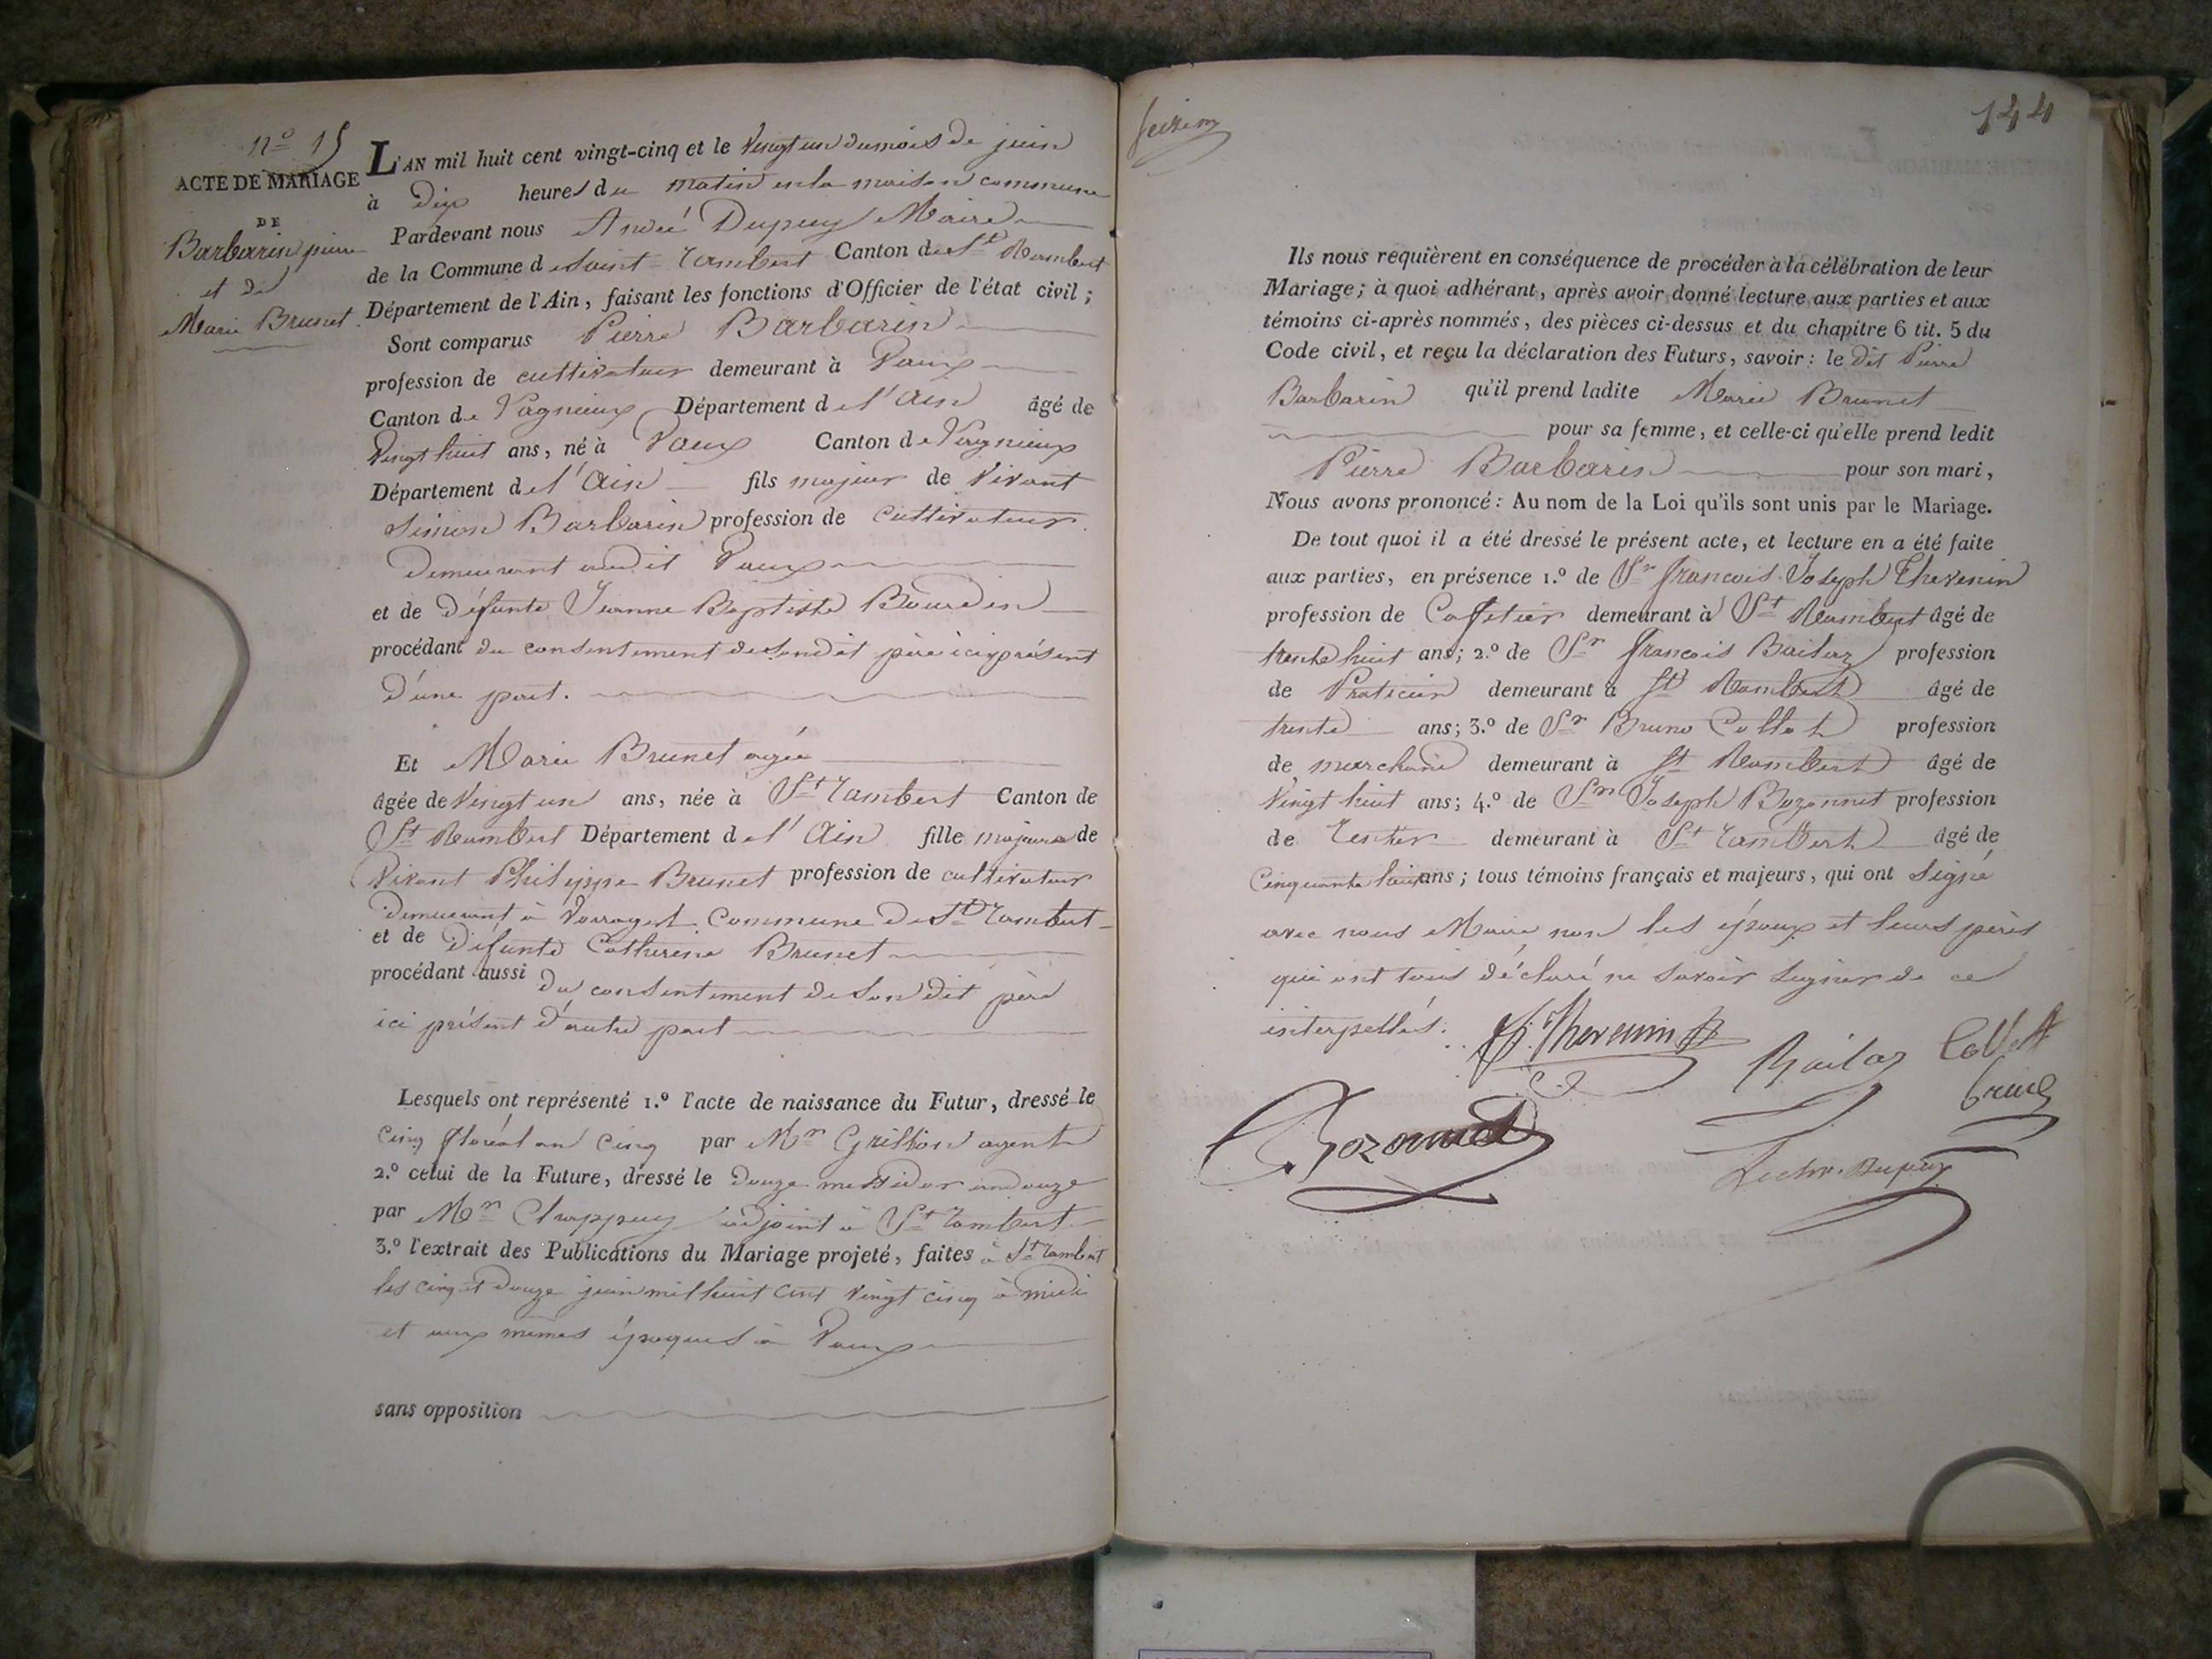 nº 15
ACTE DE MARIAGE
DE
Barbarin pierre
et de
Marie Brunet
L'AN mil huit cent vingt-cinq et le vingt un du mois de juin
à dix heures du matin en la maison commune
Pardevant nous André Dupuy Maire
de la Commune de Saint-Rambert Canton de St Rambert
Département de l'Ain, faisant les fonctions d'Officier de l'état civil ;
Sont comparus Pierre Barbarin
profession de cultivateur demeurant à Vaux
Canton de Lagnieux Département de l'Ain âgé de
vingt huit ans, né à Vaux Canton de Lagnieux
Département de l'Ain fils majeur de vivant
Simon Barbarin profession de cultivateur
demeurant audit Vaux
et de défunte Jeanne Baptiste Bourdin
procédant du consentement de sondit père ici présent
d'une part.
Et Marie Brunet agée
âgée de vingt un ans, née à St Rambert Canton de
St Rambert Département de l'Ain fille majeure de
vivant Philippe Brunet profession de cultivateur
demeurant à Commune de St Rambert
et de défunte Catherine Brunet
procédant aussi du consentement de son dit père
ici présent d'autre part
Lesquels ont représenté 1.º l'acte de naissance du Futur, dressé le
cinq floréal an cinq par Mr Grillon agent
2.º celui de la Future, dressé le douze messidor an douze
par Mr Chappuy adjoint à St Rambert
3.º l'extrait des Publications du Mariage projeté, faites à St Rambert
les cinq et douze juin mil huit cent vingt cinq à midi
et aux mêmes époques à Vaux
sans opposition
144
Ils nous requièrent en conséquence de procéder à la célébration de leur
Mariage ; à quoi adhérant, après avoir donné lecture aux parties et aux
témoins ci-après nommés, des pièces ci-dessus et du chapitre 6 tit. 5 du
Code civil, et reçu la déclaration des Futurs, savoir : le dit Pierre
Barbarin qu'il prend ladite Marie Brunet
pour sa femme, et celle-ci qu'elle prend ledit
Pierre Barbarin pour son mari,
Nous avons prononcé : Au nom de la Loi qu'ils sont unis par le Mariage.
De tout quoi il a été dressé le présent acte, et lecture en a été faite
aux parties, en présence 1.º de Sr francois Joseph Thevenin
profession de Caffetier demeurant à St Rambert âgé de
trente huit ans ; 2.º de Sr francois Bailaz profession
de Praticien demeurant à St Rambert âgé de
trente ans ; 3.º de Sr Bruno Collet profession
de marchand demeurant à St Rambert âgé de
vingt huit ans ; 4.º de Sr Joseph Bozonnet profession
de rentier demeurant à St Rambert âgé de
cinquante huit ans ; tous témoins français et majeurs, qui ont signé
avec nous Maire non les époux et leurs pères
qui ont tous déclaré ne savoir signer de ce
interpellés.
Thevenin
Bailaz
Collet
Bruno
Bozonnet
Dupuy